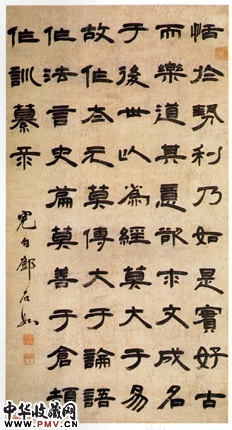 恬於勢利乃如是實好古
而樂道其意欲求文成名
于後世以為經莫大于易
故作太元莫傳大于論語
作法言史篇莫善于倉頡
作訓纂
完白鄧石如
中华收藏网
www.PMV.CN